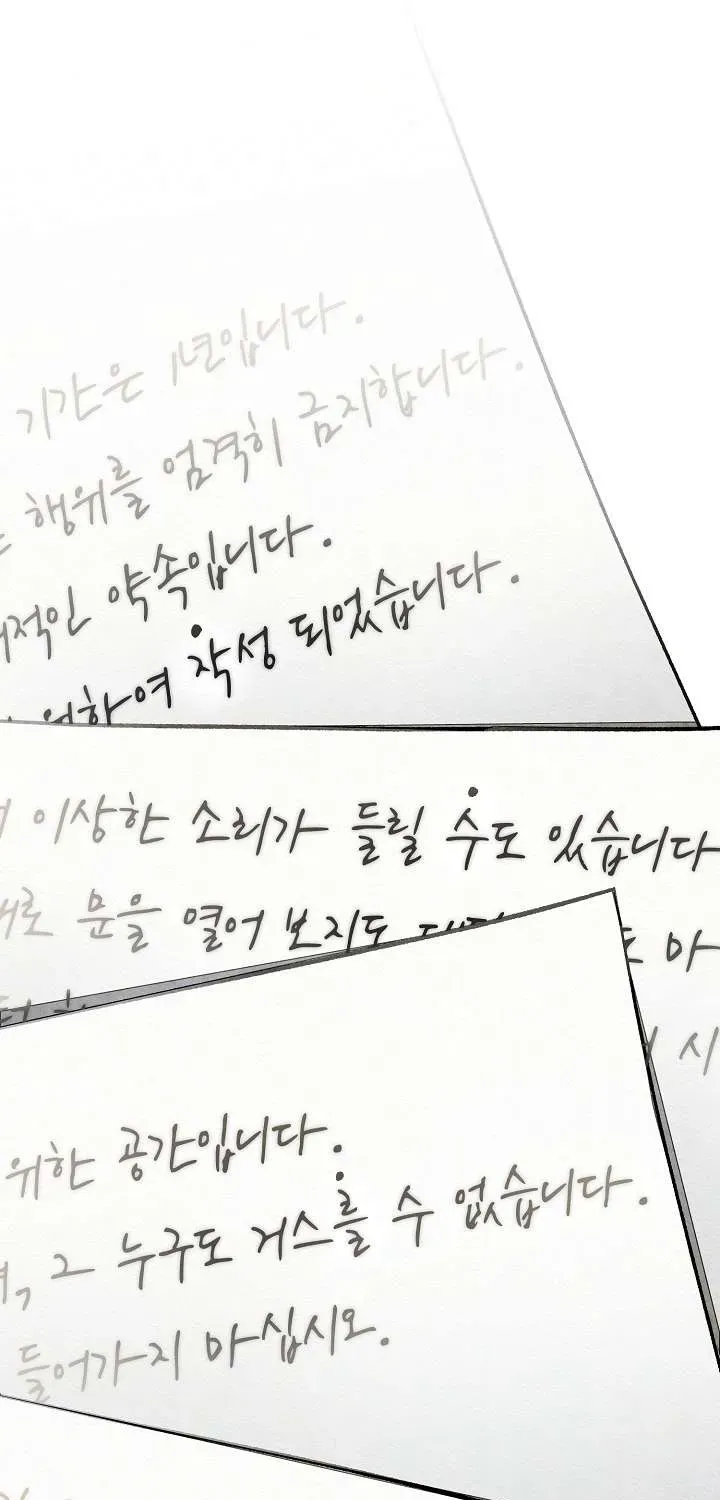 기간은 1년입니다.
행위를 엄격히 금지합니다.
약속입니다.
위하여 작성 되었습니다.
이상한 소리가 들릴 수도 있습니다
문을 열어 보지도 마
시
위한 공간입니다.
그 누구도 거스를 수 없습니다.
들어가지 마십시오.